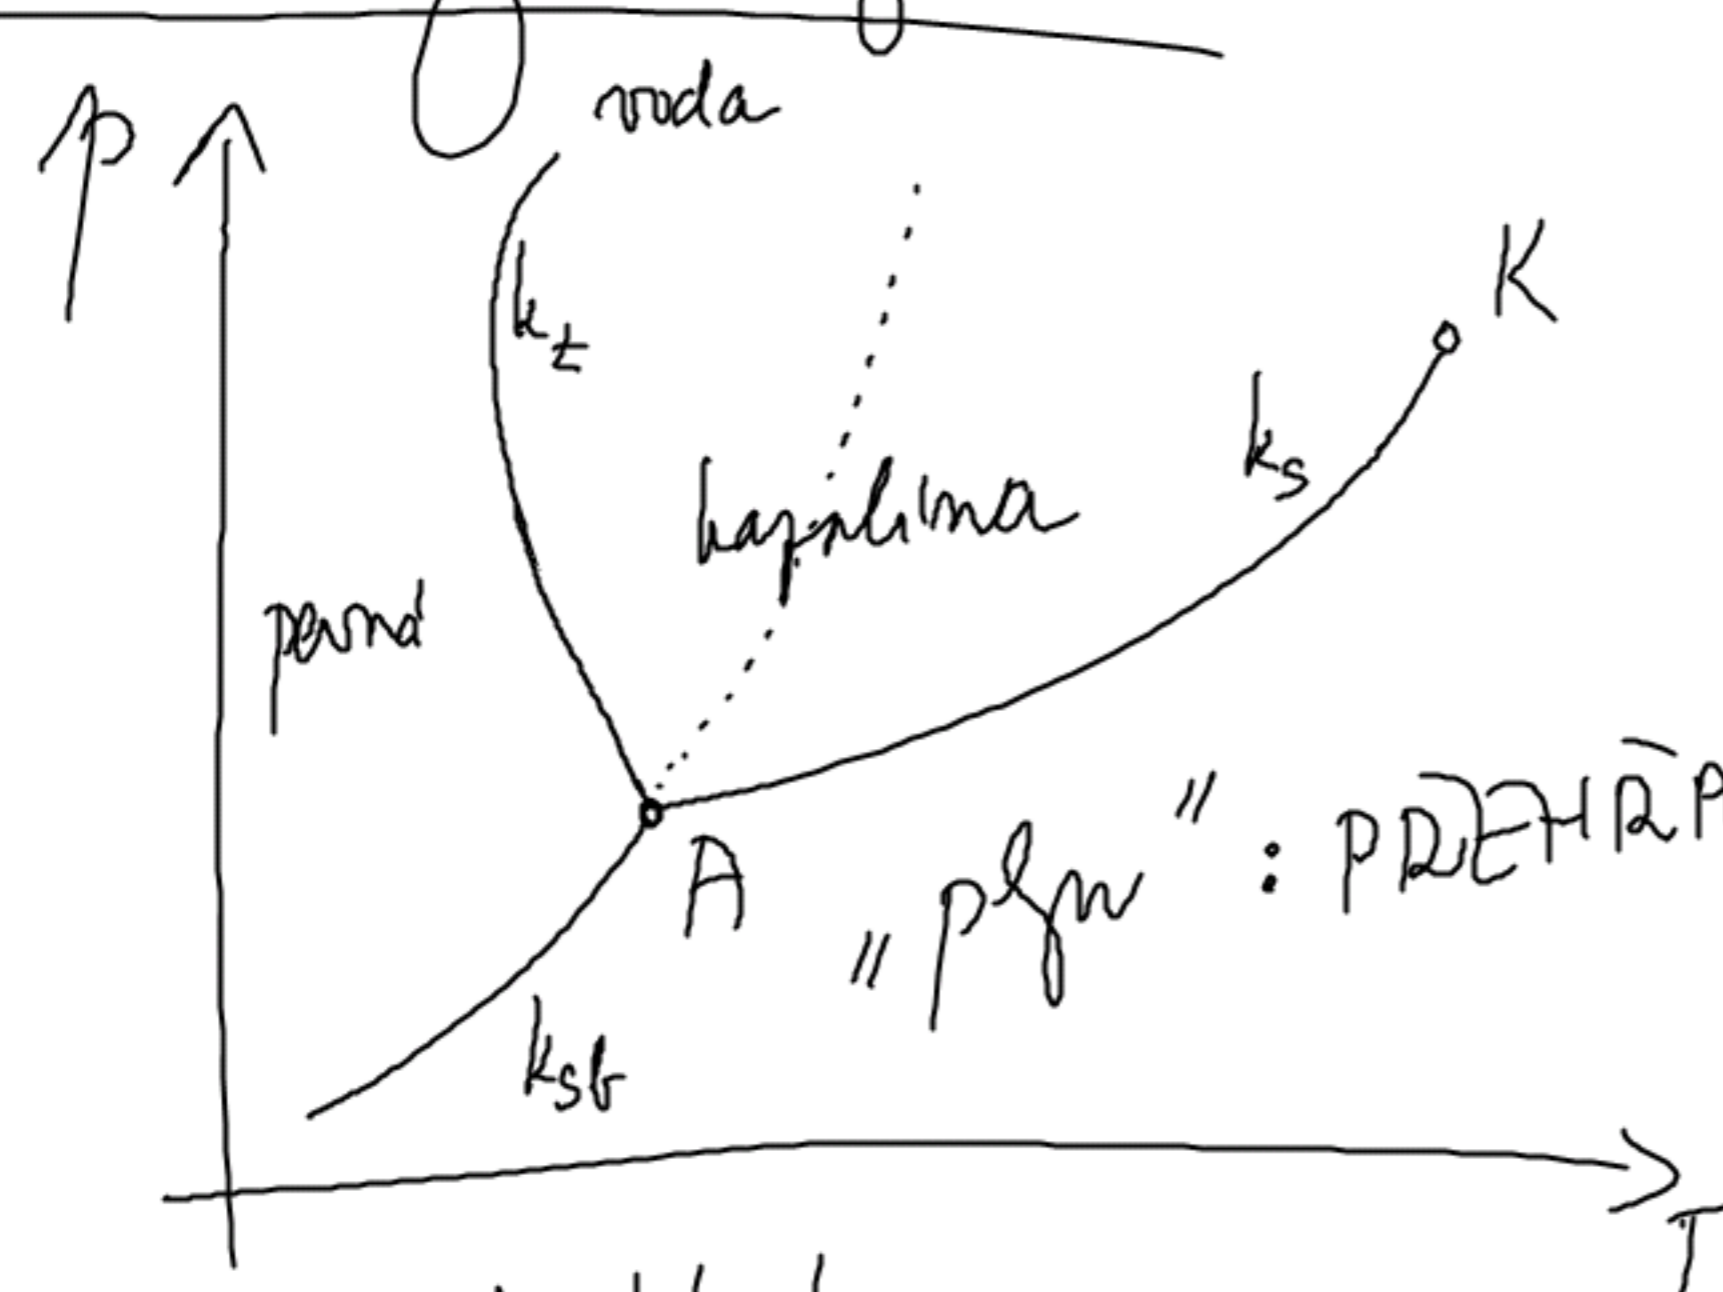 voda
p
K
k_t
k_s
kapalina
pevná
A
„plyn“: PŘEHŘ
k_sb
T